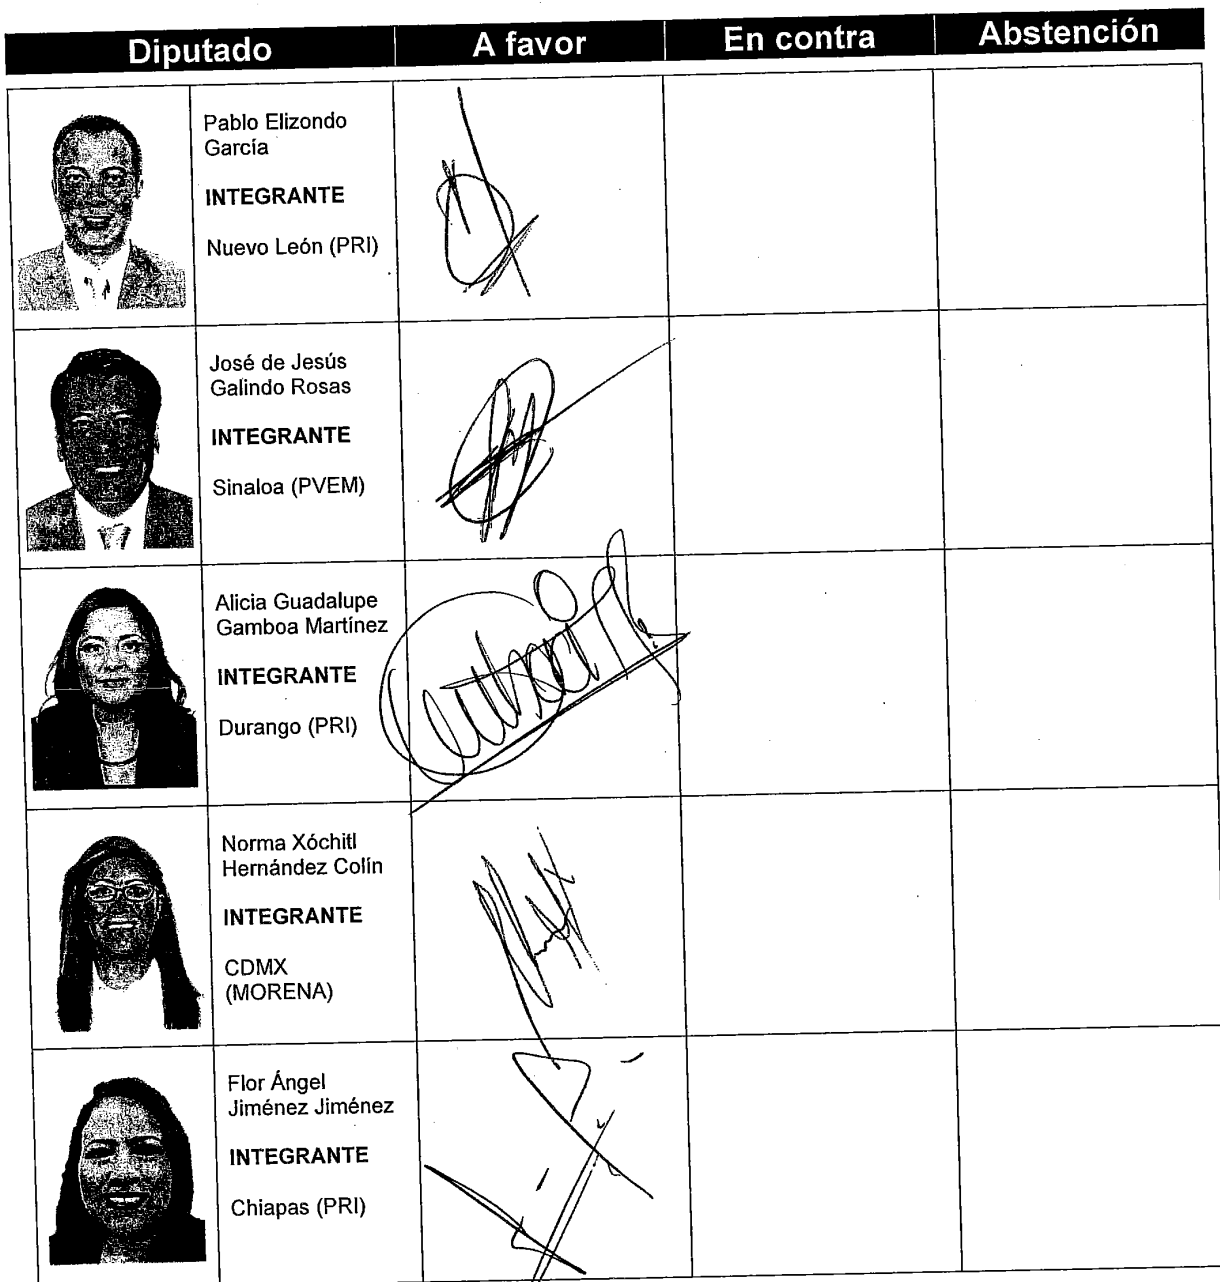 Diputado A favor En contra Abstención
Pablo Elizondo
García
INTEGRANTE
Nuevo León (PRI)
José de Jesús
Galindo Rosas
INTEGRANTE
Sinaloa (PVEM)
Alicia Guadalupe
Gamboa Martínez
INTEGRANTE
Durango (PRI)
Norma Xóchitl
Hernández Colín
INTEGRANTE
CDMX
(MORENA)
Flor Ángel
Jiménez Jiménez
INTEGRANTE
Chiapas (PRI)